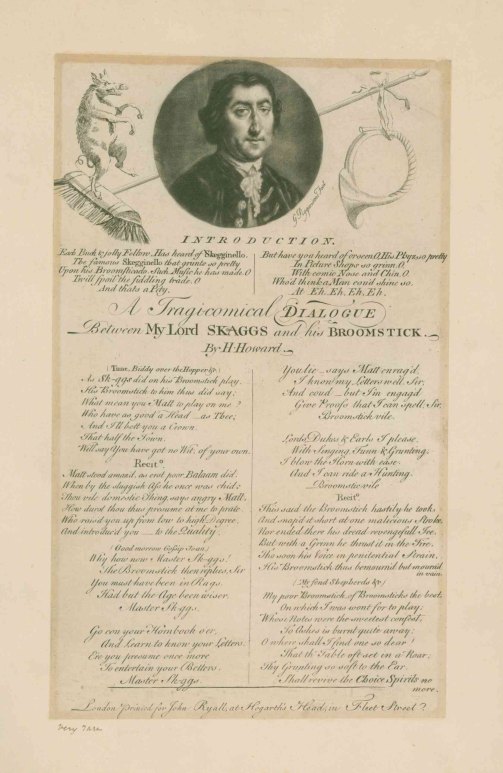 G. Raymond Fecit
INTRODUCTION.
Each Buck & jolly Fellow. Has heard of Skegginello.
The famous Skegginello that grunts so pretty
Upon his Broomsticado. Such Music he has made. O
Twill spoil the fiddling trade. O
And thats a Pity.
But have you heard or croscen. O. His Phyz so pretty
In Picture Shops so grinn. O
With comic Nose and Chin. O
Who'd think a Man coud shine so.
At Eh. Eh. Eh. Eh.
A Tragi-comical DIALOGUE
Between My Lord SKAGGS and his BROOMSTICK.
By H. Howard.
(Tune, Biddy over the Hopper &c)
As Sk-ggs did on his Broomstick play.
His Broomstick to him thus did say;
What mean you Matt to play on me?
Who have as good a Head as Thee;
And I'll bett you a Crown.
That half the Town.
Will say You have got no Wit, of your own.
Recit.o
Matt stood amaz'd, as erst poor Balaam did.
When by the sluggish Ass he once was chid:
Thou vile domestic Thing, says angry Matt.
How durst thou thus presume at me to prate.
Who rais'd you up from low to high Degree.
And introduc'd you to the Quality.
(Good morrow Gossip Joan)
Why how now Master Sk-ggs!
The Broomstick then replies, Sir
You must have been in Rags.
Had but the Age been wiser.
Master Sk-ggs.
Go con your Hornbook o'er.
And Learn to know your Letters.
Ere you presume once more
To entertain your Betters.
Master Sk-ggs.
You lie says Matt enrag'd.
I know my Letters well, Sir.
And coud but I'm engag'd
Give Proofs that I can spell, Sir,
Broomstick vile.
Lords, Dukes & Earls I please.
With Singing, Funn & Grunting:
I blow the Horn with ease.
And I can ride a Hunting.
Broomstick vile
Recit.o
This said the Broomstick hastily he took,
And snap'd it short at one malicious Stroke.
Nor ended there his dread revengefull Ire.
But with a Grinn he thrust it in the Fire.
His soon his Voice in penitential Strain,
His Broomstick thus bemourn'd but mourn'd
in vain
(My fond Shepherds &c)
My poor Broomstick, of Broomsticks the best.
On which I was wont for to play:
Whose Notes were the sweetest confest,
To Ashes is burnt quite away;
O where shall I find one so dear!
That th' Table oft set in a Roar;
Thy Grunting so soft to the Ear.
Shall revive the Choice Spirits no
more.
London Printed for John Ryall, at Hogarth's Head, in Fleet Street
very rare